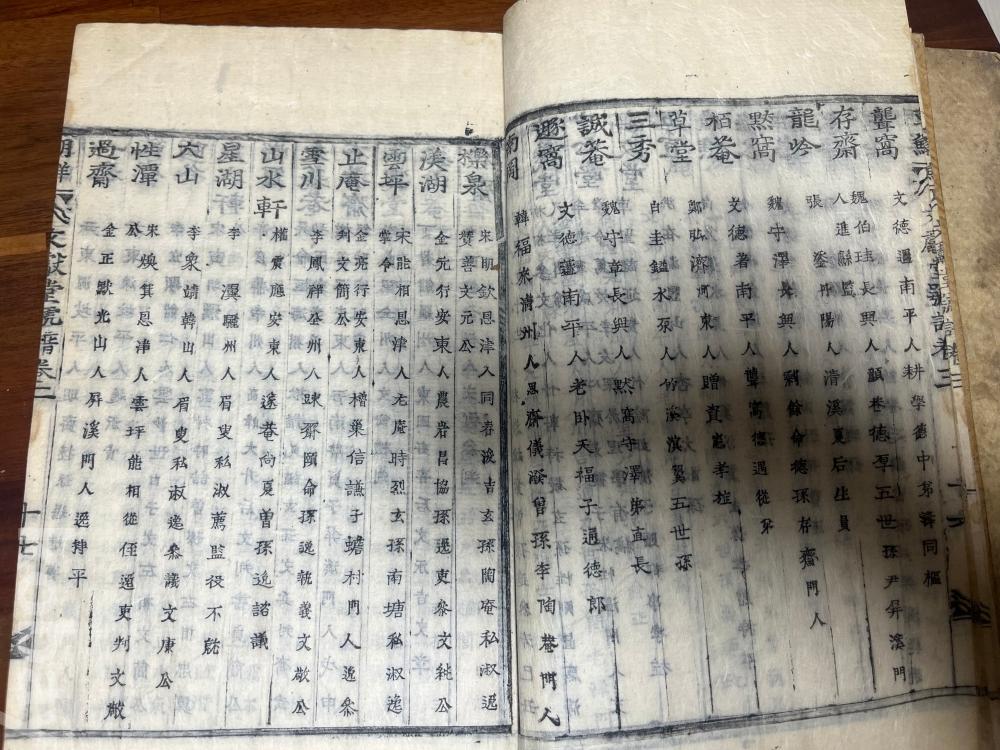 聾窩 文德遇南平人耕學德中弟
存齋 魏伯珪長興人顔巷德厚五世孫尹屛溪門人進縣監
龍吟 張 陽人清溪夏后生員
黙窩 魏守澤長興人剩餘命德孫存齋門人
栢菴 文德者南平人聾窩德遇從弟
草堂 鄭弘濟河東人贈直憲孝柱
三秀堂 白圭鎰水原人竹溪濱翼五世孫
誠菴堂 魏守章長興人黙窩守澤弟直長
遯窩堂 文德謹南平人老卧天福子通德郎
南岡 韓福来淸州人思齋儀 曾孫李陶菴門人
櫟泉 宋明欽恩津人同春浚吉玄孫陶庵私淑逸賛善文元公
渼湖 金元行安東人農岩昌協孫逸吏參文純公
雲坪 宋能相恩津人尤庵時烈玄孫南塘私淑逸掌令
止庵齋 金亮行安東人檜巢信謙子蟾村門人逸參判文簡公
雪川 李鳳祥全州人踈齋頤命孫逸執義文敬公
山水軒 權震應安東人遂菴尚夏曽孫逸諮議
星湖 李瀷驪州人眉叟私淑薦監役不就
大山 李象靖韓山人眉叟私淑逸參議文康公
性潭 宋煥箕恩津人雲坪能相從侄逸吏判文敬公
過齋 金正默光山人屛溪門人逸持平
朝鮮 文獻堂號譜卷之二 十七